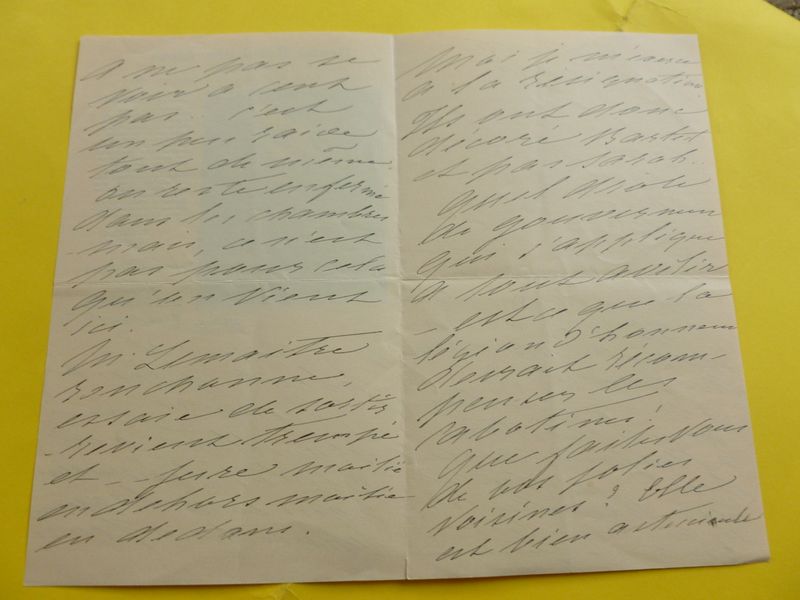 a ne pas se
voir a cent
pas.. c'est
un peu raide
tout de même
on reste enfermé
dans les chambres
- mais, ce n'est
pas pour cela
qu'on vient
ici.
M. Lemaître
ronchonne,
essaie de sortir
- revient trempé
et - - jure moitié
en dehors moitié
en dedans.
Moi je m'exerce
a la résignation.
Ils ont donc
décoré Bartet
et pas Sarah..
quel drôle
de gouvernemen
qui s'applique
a tout avilir
- est ce que la
légion d'honneur
devrait récom-
penser les
cabotines!
que faites vous
de vos jolies
voisines? Elle
est bien